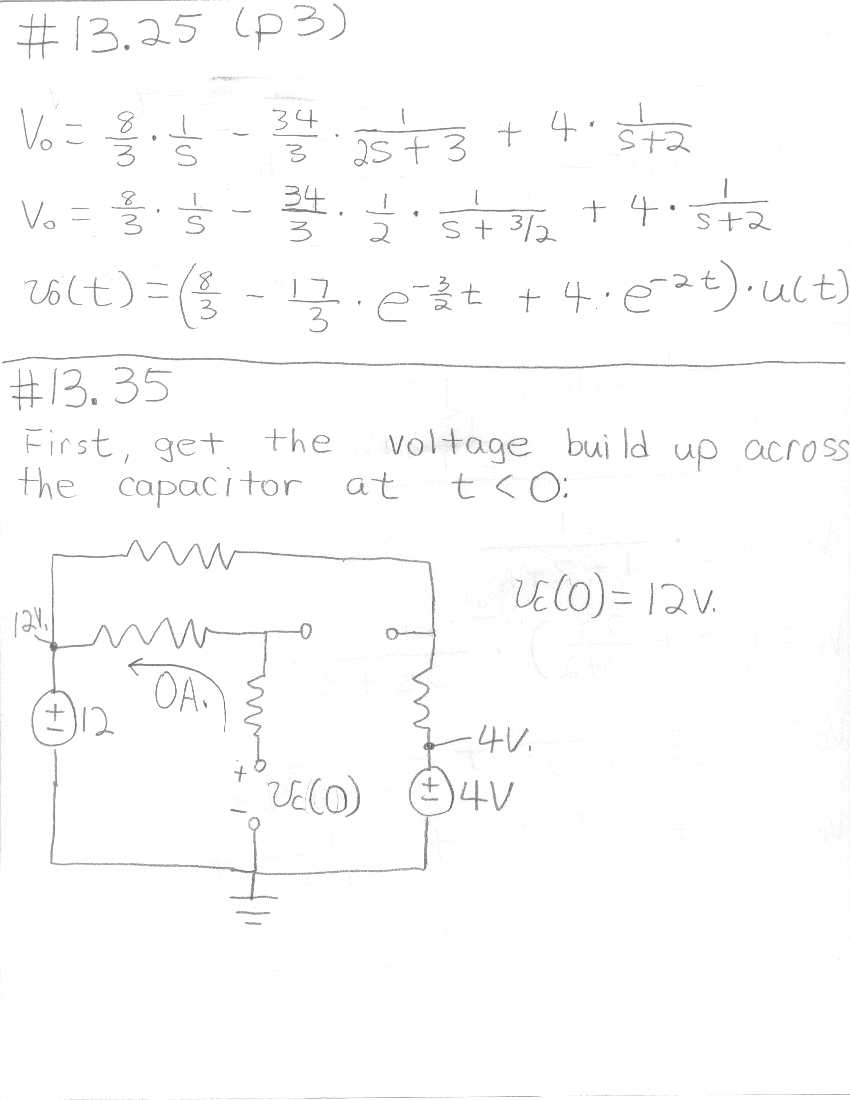 #13.25 (p3)
V₀ = 8/3 · 1/S - 34/3 · 1/(2S + 3) + 4 · 1/(S+2)
V₀ = 8/3 · 1/S - 34/3 · 1/2 · 1/(S + 3/2) + 4 · 1/(S+2)
v₀(t) = (8/3 - 17/3 · e^(-3/2 t) + 4 · e^(-2t)) · u(t)
#13.35
First, get the voltage build up across
the capacitor at t < 0:
v_c(0) = 12V.
12V.
0A.
± 12
4V.
+ v_c(0) -
± 4V